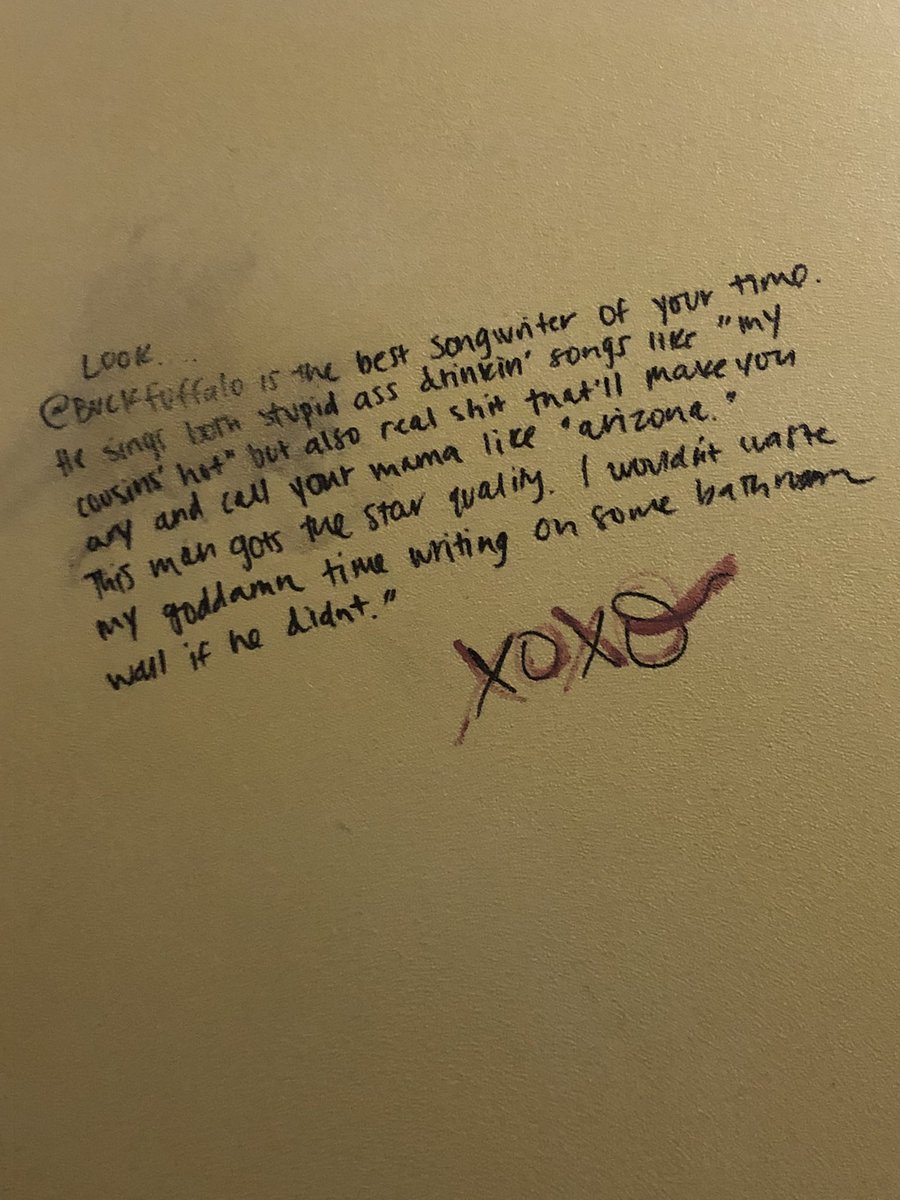 LOOK....
@Buckfuffalo is the best songwriter of your time.
He sings both stupid ass drinkin' songs like "my
cousins' hot" but also real shit that'll make you
cry and call your mama like "arizona."
This man gots the star quality. I wouldn't waste
my goddamn time writing on some bathroom
wall if he didnt."
XOXO